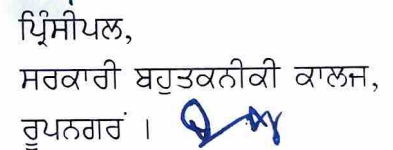 ਪ੍ਰਿੰਸੀਪਲ,
ਸਰਕਾਰੀ ਬਹੁਤਕਨੀਕੀ ਕਾਲਜ,
ਰੂਪਨਗਰ ।